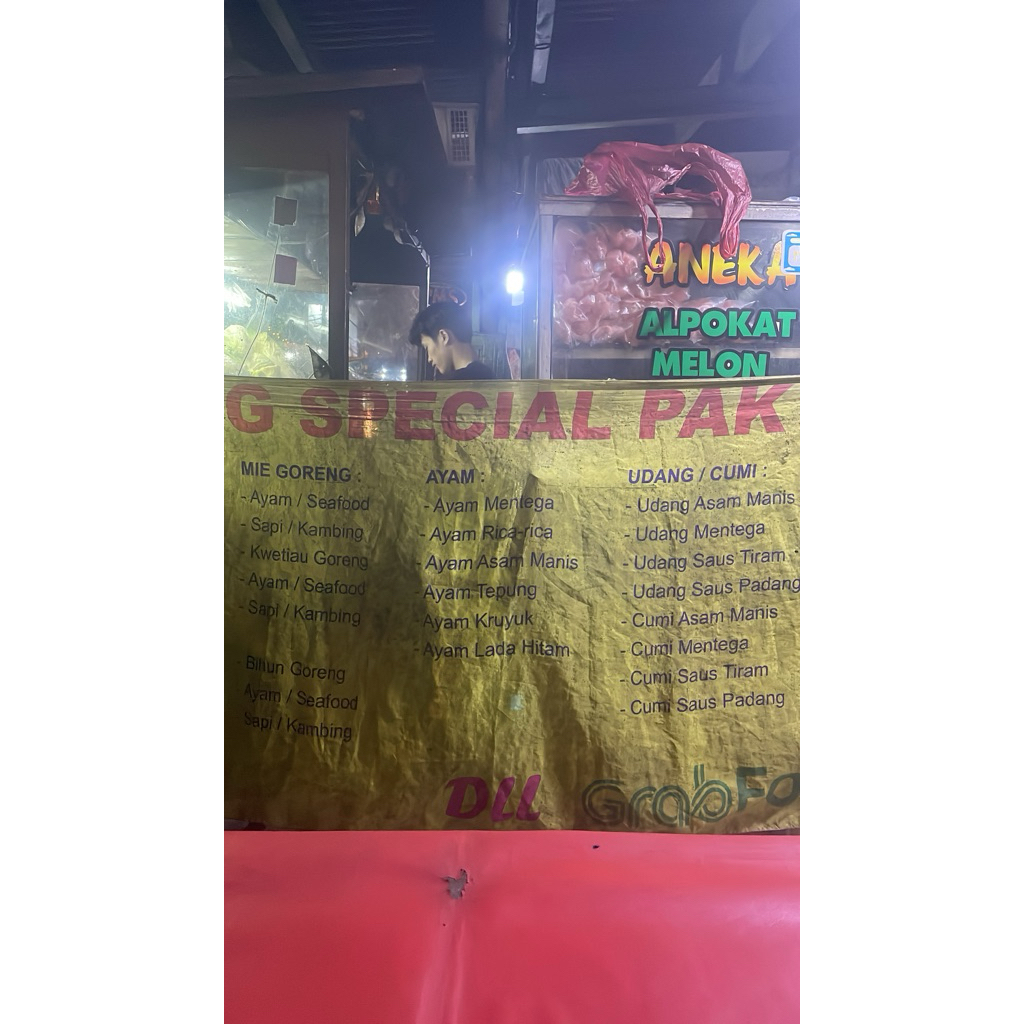 ANEKA
ALPOKAT
MELON
G SPECIAL PAK
MIE GORENG :
- Ayam / Seafood
- Sapi / Kambing
- Kwetiau Goreng
- Ayam / Seafood
- Sapi / Kambing
- Bihun Goreng
Ayam / Seafood
Sapi / Kambing
AYAM :
- Ayam Mentega
- Ayam Rica-rica
- Ayam Asam Manis
- Ayam Tepung
- Ayam Kruyuk
- Ayam Lada Hitam
UDANG / CUMI :
- Udang Asam Manis
- Udang Mentega
- Udang Saus Tiram
- Udang Saus Padang
- Cumi Asam Manis
- Cumi Mentega
- Cumi Saus Tiram
- Cumi Saus Padang
DLL
GrabFo